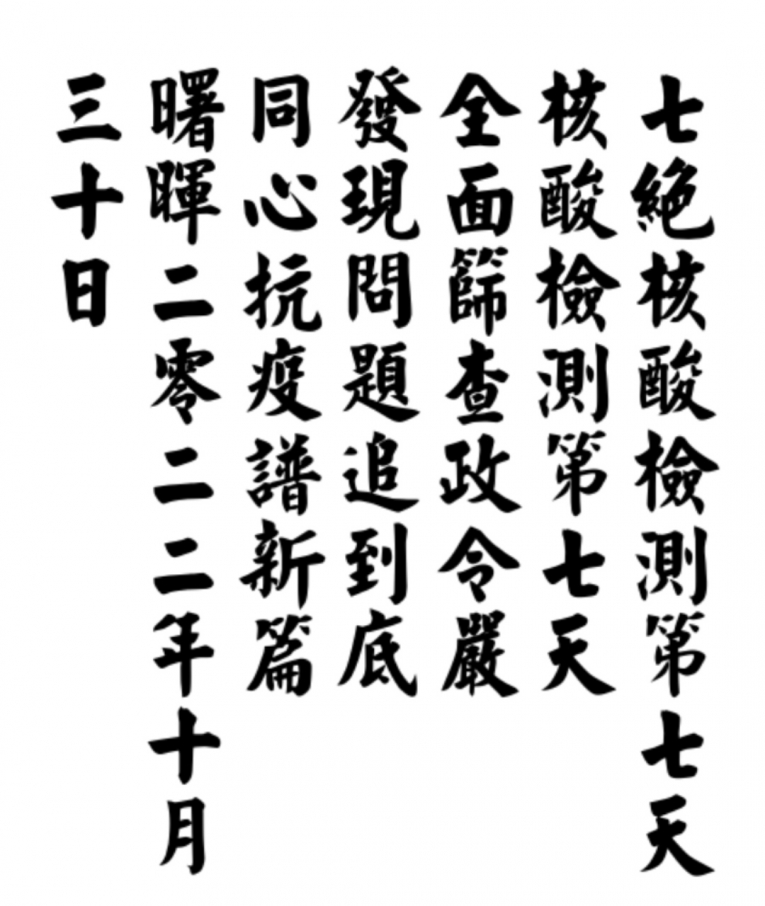 七絕核酸檢測第七天
核酸檢測第七天
全面篩查政令嚴
發現問題追到底
同心抗疫譜新篇
曙暉二零二二年十月
三十日